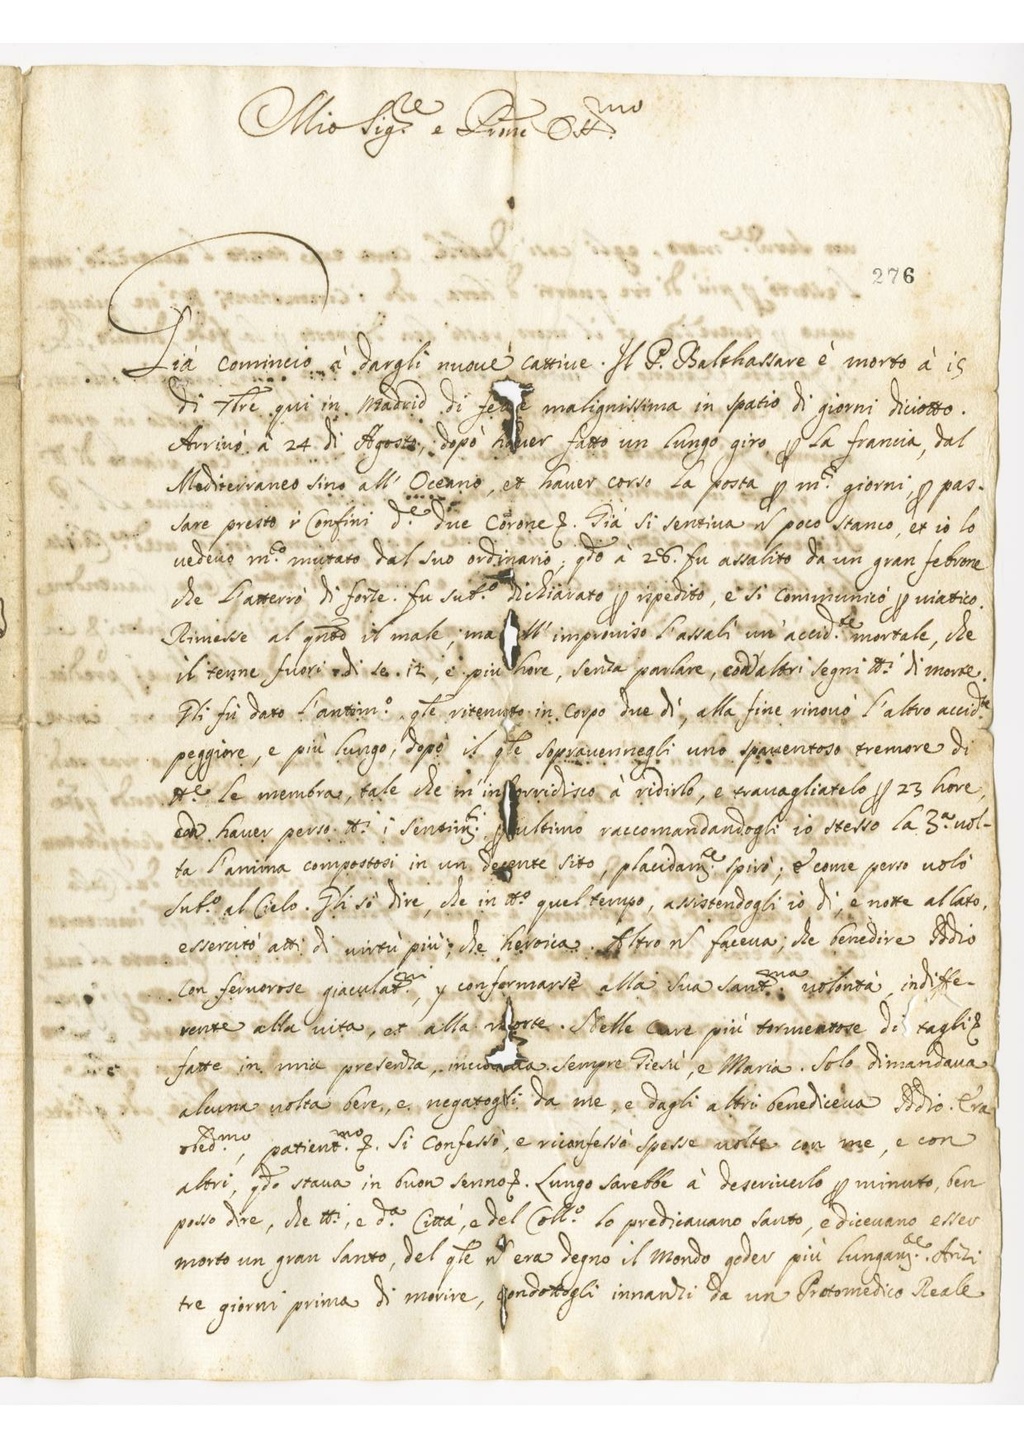 Mio Sig.re e Prine Oss.mo
276
Già comincio à dargli nuoue cattiue. Il P. Balthassare è morto à 15
di 7bre qui in Madrid di malignissima in spatio di giorni diciotto.
Arriuò à 24 di Agosto, dopò hauer fatto un lungo giro p la francia, dal
Mediterraneo sino all' Oceano, et hauer corso la posta p m.ti giorni, p pas-
sare presto i Confini d.e due Corone. Già si sentiua ñ poco stanco, et io lo
vedeuo m.to mutato dal suo ordinario; qdo à 26. fu assalito da un gran febrone
che l'atterrò di forze. fu sub.o dichiarato p ispedito, e si communicò p uiatico.
Rimesse al qnto il male, ma all' improuiso l'assalì un' accid.te mortale, che
il tenne fuori di se. 12, e più hore, senza parlare, con altri segni tt.i di morte.
Gli fù dato l'antim.o qle ritenuto in corpo due dì, alla fine rinouò l'altro accid.te
peggiore, e più lungo, dopò il qle soprauennegli uno spauentoso tremore di
tt.e le membra, tale che m'inhorridisco à ridirlo, e trauagliatelo p 23 hore,
ed hauer perso tt.i i sentim.ti p ultimo raccomandandogli io stesso la 3.a uol-
ta l'anima compostosi in un decente sito, placidam.te spirò; e come perso uolò
sub.o al Cielo. Gli sò dire, che in tt.o quel tempo, assistendogli io dì, e notte allato,
essercitò atti di uirtù più, che heroica. Altro ñ faceua, che benedire Iddio
con feruorose giaculat.ni, y conformarsi alla sua sant.ma uolontà, indiffe-
rente alla uita, et alla morte. Nelle cure più tormentose di tagli
fatte in mia presenza, inuocaua sempre Giesù, e Maria. Solo dimandaua
alcuna uolta bere, e negatogli da me, e dagli altri benediceua Iddio. Era
obed.mo, patient.mo. Si confessò, e riconfessò spesse uolte con me, e con
altri, qdo staua in buon senno. Lungo sarebbe à descriuerlo p minuto, ben
posso dire, che tt.i, e d.a Città, e del Coll.o lo predicauano santo, e diceuano esser
morto un gran santo, del qle ñ era degno il Mondo goder più lungam.te. Anzi
tre giorni prima di morire, condottogli innanzi da un Protomedico Reale